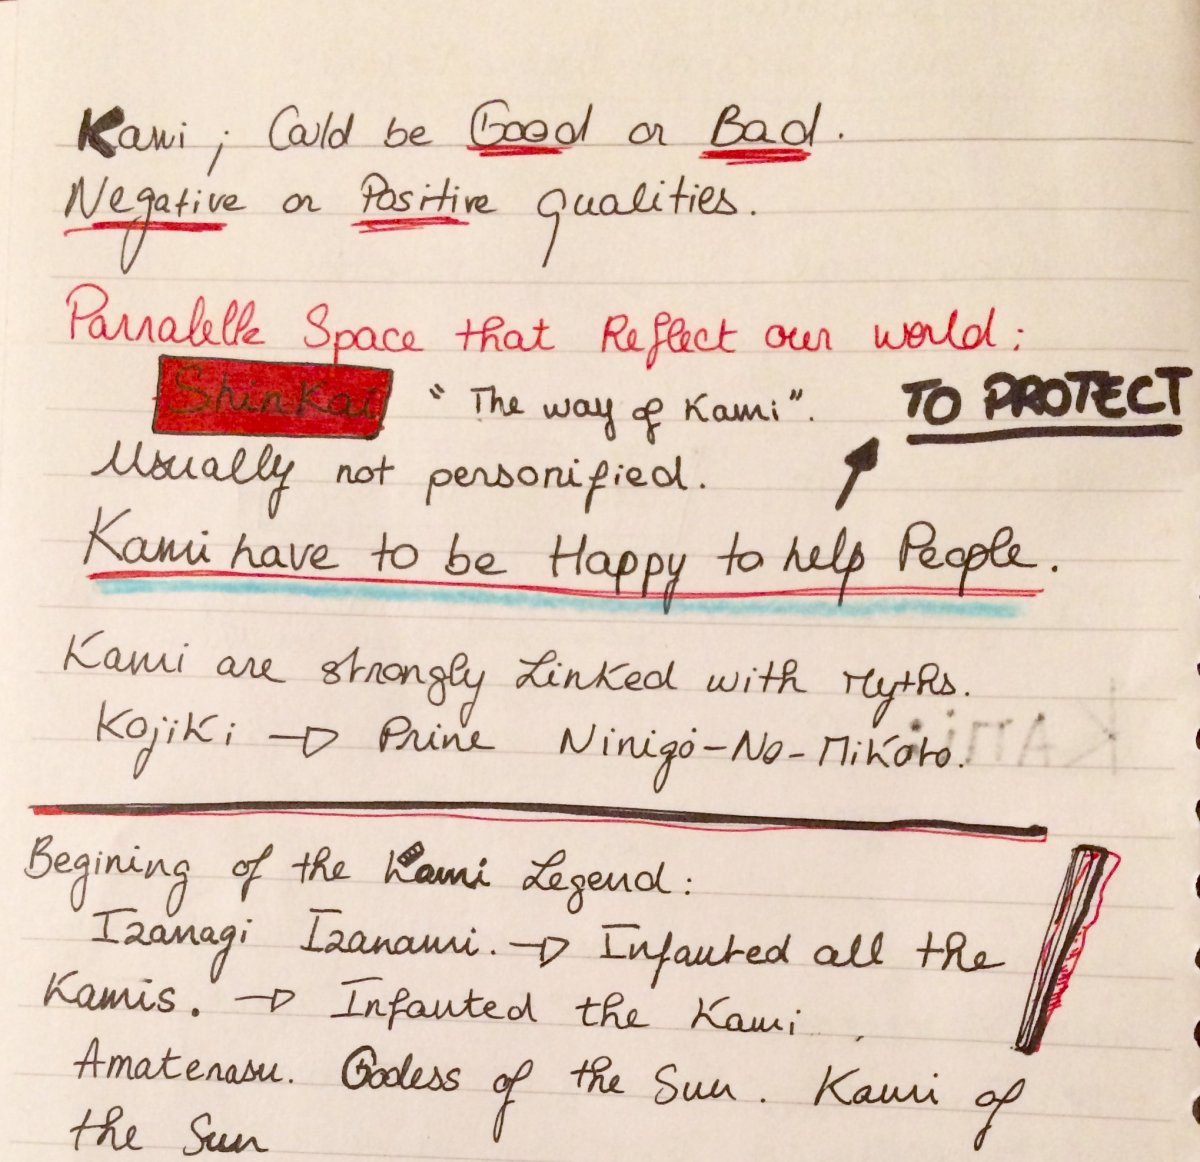 Kami ; Could be Good or Bad.
Negative or Positive qualities.
Parralelle Space that Reflect our world :
ShinKai " The way of Kami ".
TO PROTECT
Usually not personified.
Kami have to be Happy to help People.
Kami are strongly Linked with Myths.
KojiKi → Prine Ninigo-No-MiKoto.
Kami
Begining of the Kami Legend :
Izanagi Izanami. → Infanted all the
Kamis. → Infanted the Kami
Amaterasu. Godess of the Sun. Kami of
the Sun